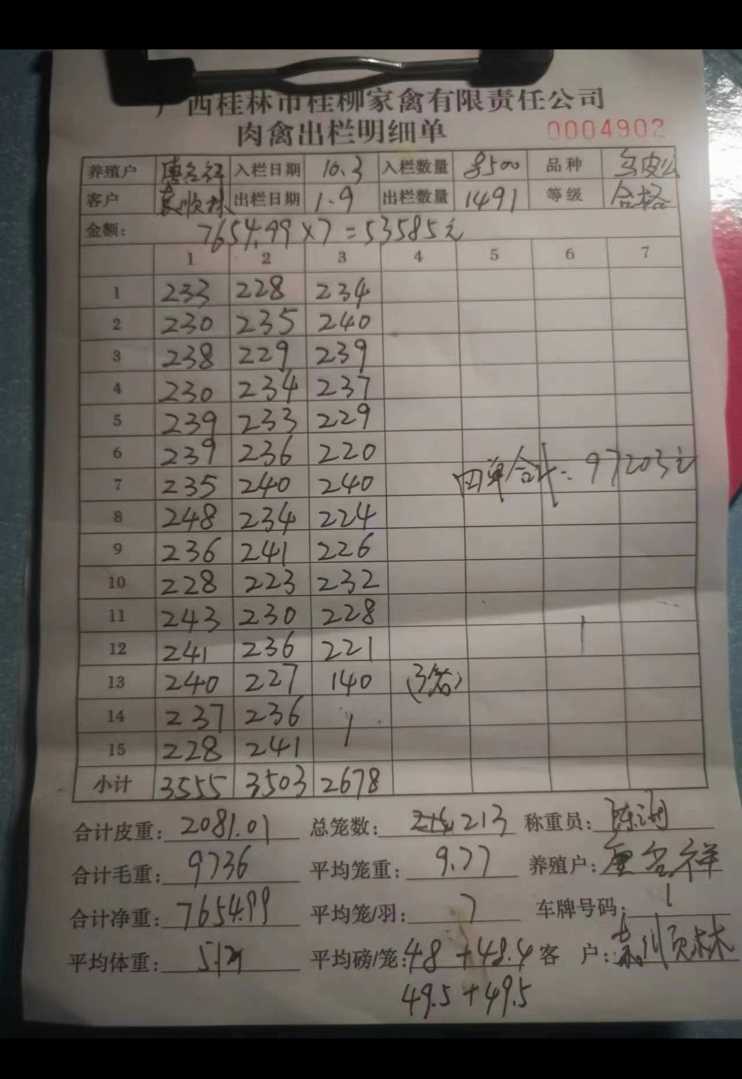 广西桂林市桂柳家禽有限责任公司
肉禽出栏明细单 0004902
养殖户 入栏日期 10.3 入栏数量 8500 品种 乌皮
客户 出栏日期 1.9 出栏数量 1491 等级 合格
金额: 7654.99×7=53585元
1 2 3 4 5 6 7
1 233 228 234
2 230 235 240
3 238 229 239
4 230 234 237
5 239 233 229
6 239 236 220
7 235 240 240 合计: 97203元
8 248 234 224
9 236 241 226
10 228 223 232
11 243 230 228
12 241 236 221
13 240 227 140
14 237 236
15 228 241
小计 3555 3503 2678
合计皮重: 2081.01 总笼数: 213 称重员:
合计毛重: 9736 平均笼重: 9.77 养殖户:
合计净重: 7654.99 平均笼/羽: 7 车牌号码:
平均体重: 平均磅/笼: 48+48.4 客 户:
49.5+49.5